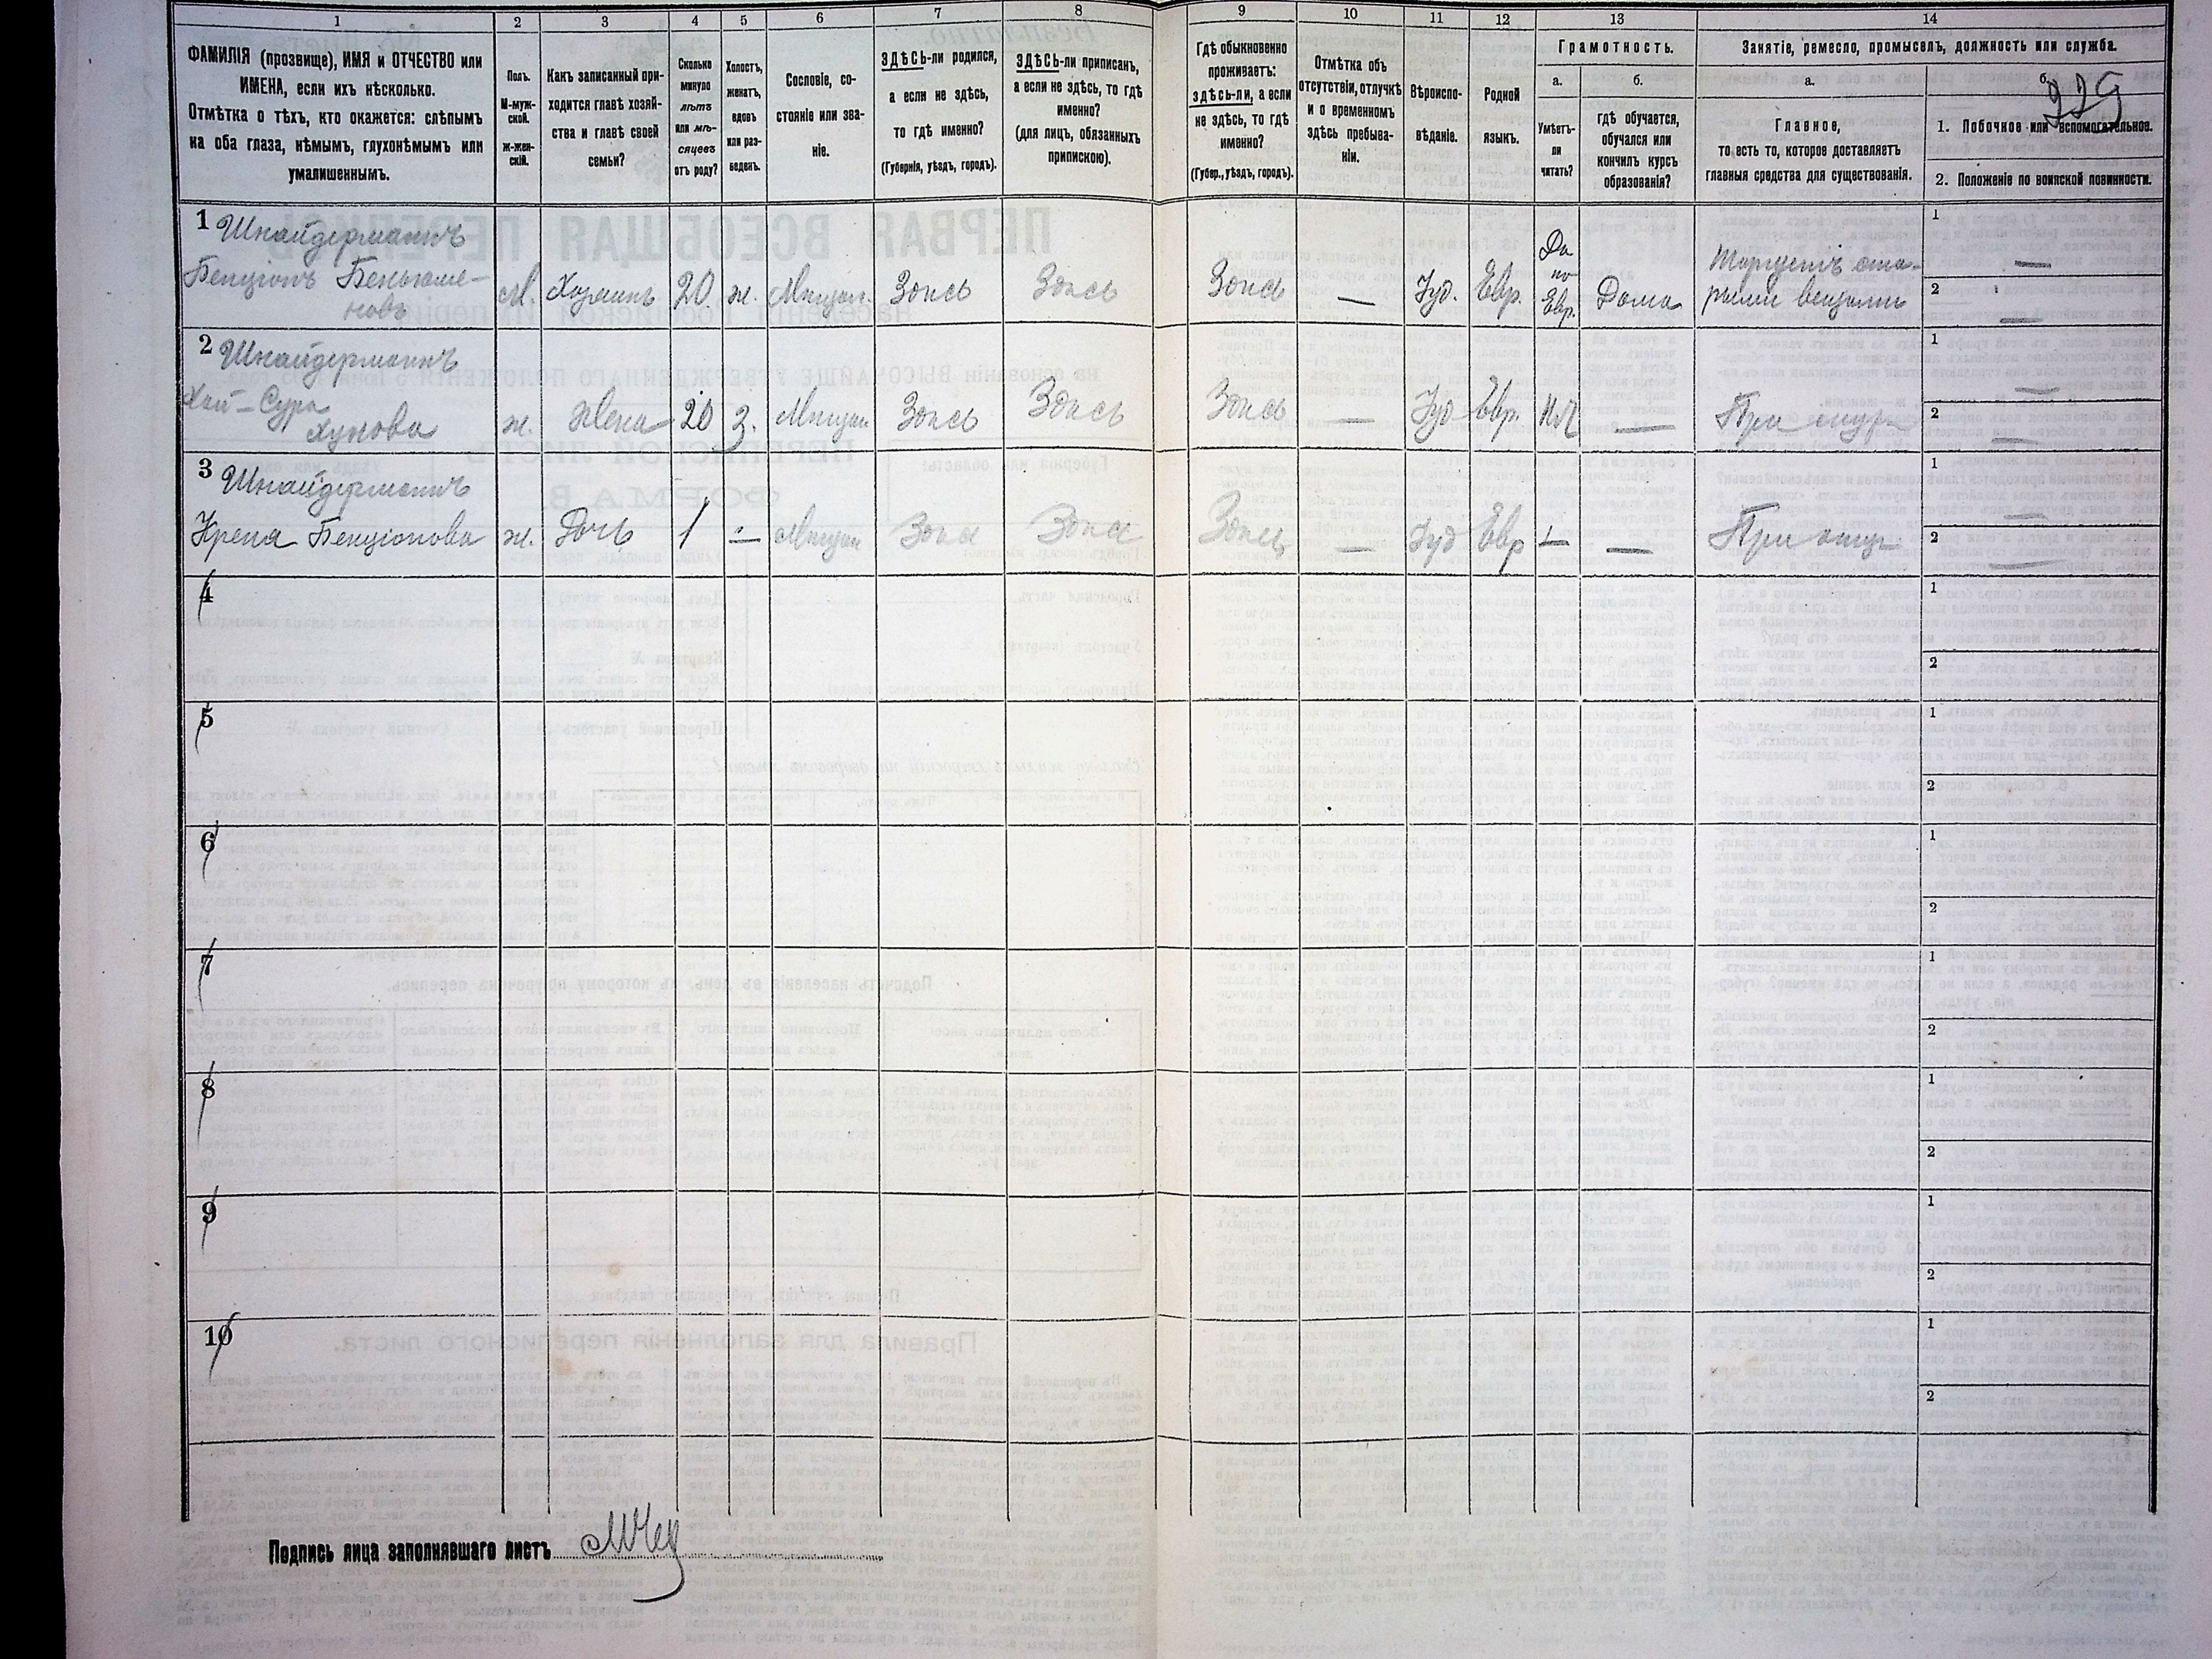 1 2 3 4 5 6 7 8 9 10 11 12 13 14
ФАМИЛІЯ (прозвище), ИМЯ и ОТЧЕСТВО или
ИМЕНА, если ихъ нѣсколько.
Отмѣтка о тѣхъ, кто окажется: слѣпымъ
на оба глаза, нѣмымъ, глухонѣмымъ или
умалишеннымъ.
Полъ.
М-муж-
ской.
Ж-жен-
скій.
Какъ записанный при-
ходится главѣ хозяй-
ства и главѣ своей
семьи?
Сколько
минуло
лѣтъ
или мѣ-
сяцевъ
отъ роду?
Холостъ,
женатъ,
вдовъ
или раз-
веденъ.
Сословіе, со-
стояніе или зва-
ніе.
ЗДѢСЬ-ли родился,
а если не здѣсь,
то гдѣ именно?
(Губернія, уѣздъ, городъ).
ЗДѢСЬ-ли приписанъ,
а если не здѣсь, то гдѣ
именно?
(для лицъ, обязанныхъ
припискою).
Гдѣ обыкновенно
проживаетъ:
здѣсь-ли, а если
не здѣсь, то гдѣ
именно?
(Губер., уѣздъ, городъ).
Отмѣтка объ
отсутствіи, отлучкѣ
и о временномъ
здѣсь пребыва-
ніи.
Вѣроиспо-
вѣданіе.
Родной
языкъ.
Грамотность.
а.
Умѣетъ-
ли
читать?
б.
гдѣ обучается,
обучался или
кончилъ курсъ
образованія?
Занятіе, ремесло, промыселъ, должность или служба.
а.
Главное,
то есть то, которое доставляетъ
главныя средства для существованія.
б.
229
1. Побочное или вспомогательное.
2. Положеніе по воинской повинности.
1 Шнайдерманъ
Бенціонъ Беньюми-
новъ
М. Хозяинъ 20 ж. Мѣщан. Здѣсь Здѣсь Здѣсь — Іуд. Евр.
Да
по
Евр.
Дома
Торгуетъ ста-
рыми вещами
1 —
2 —
2 Шнайдерманъ
Хай-Сура
Хунова
ж. Жена 20 з. Мѣщан Здѣсь Здѣсь Здѣсь — Іуд Евр. Нѣт — При муж
1 —
2 —
3 Шнайдерманъ
Крена Бенціонова ж. Дочь 1 — Мѣщан Здѣсь Здѣсь Здѣсь — Іуд Евр — — При отцѣ
1 —
2 —
4
1
2
5
1
2
6
1
2
7
1
2
8
1
2
9
1
2
10
1
2
Подпись лица заполнявшаго листъ